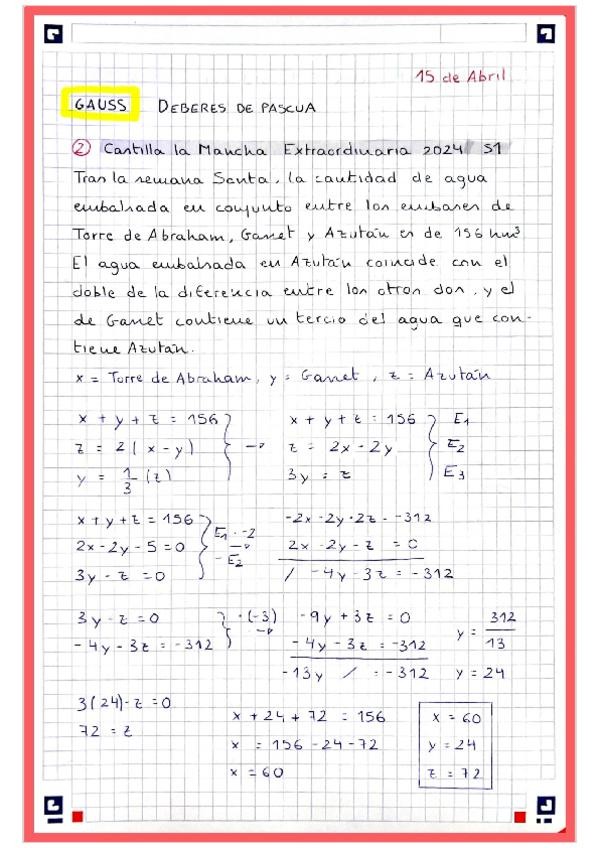 15 de Abril
GAUSS DEBERES DE PASCUA
② Castilla la Mancha Extraordinaria 2024 S1
Tras la semana Santa, la cantidad de agua
embalsada en conjunto entre los embases de
Torre de Abraham, Gasset y Azután es de 156 hm³
El agua embalsada en Azután coincide con el
doble de la diferencia entre los otros dos, y el
de Gasset contiene un tercio del agua que con-
tiene Azután.
x = Torre de Abraham, y = Gasset, z = Azután
x + y + z = 156 x + y + z = 156 E1
z = 2(x - y) → z = 2x - 2y E2
y = 1/3 (z) 3y = z E3
x + y + z = 156 E1 · -2 -2x - 2y - 2z = -312
2x - 2y - 5 = 0 → - E2 2x - 2y - z = 0
3y - z = 0 / -4y - 3z = -312
3y - z = 0 · (-3) -9y + 3z = 0 y = 312/13
-4y - 3z = -312 → -4y - 3z = -312
-13y / = -312 y = 24
3(24) - z = 0
72 = z
x + 24 + 72 = 156 x = 60
x = 156 - 24 - 72 y = 24
x = 60 z = 72